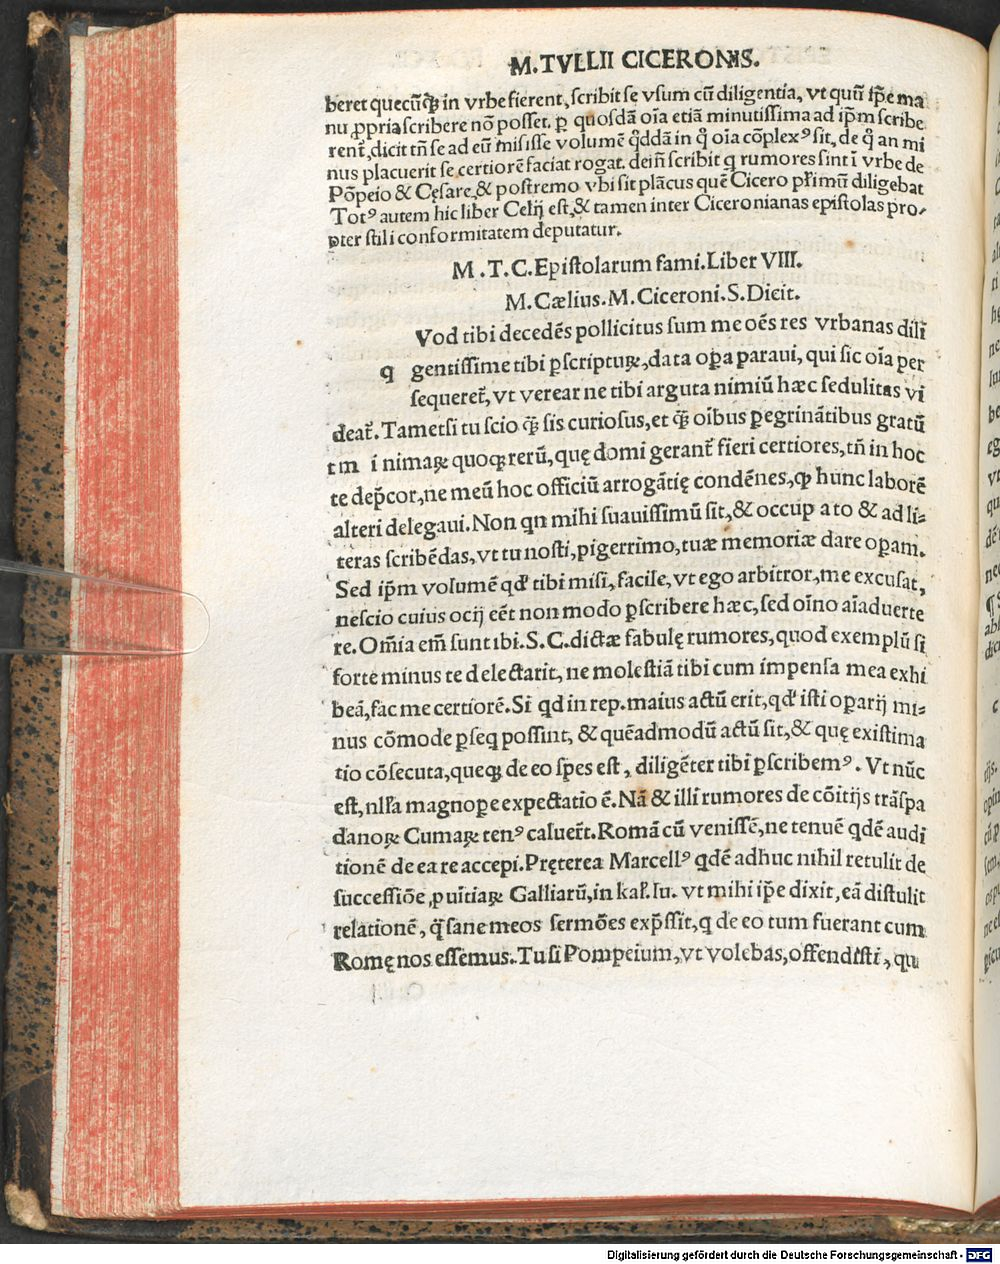 M. TVLLII CICERONIS.
beret quecūq̄ in vrbe fierent, scribit se vsum cū diligentia, vt quū ip̄e ma
nu ꝓpria scribere nō posset. ꝑ quosdā oīa etiā minutissima ad ip̄m scribe
rent̄, dicit tn̄ se ad eū misisse volumē q̇ddā in q̇ oīa cōplexꝰ sit, de q̇ an mi
nus placuerit se certiorē faciat rogat. dein̄ scribit q̨ rumores sint ī vrbe de
Pōpeio & Cęsare, & postremo vbi sit plācus quē Cicero pl̄rimū diligebat
Totꝰ autem hic liber Celij est, & tamen inter Ciceronianas epistolas pro-
pter stili conformitatem deputatur.
M.T.C. Epistolarum fami. Liber VIII.
M. Cælius. M. Ciceroni. S. Dicit.
Vod tibi decedēs pollicitus sum me oēs res vrbanas dili
q gentissime tibi ꝑscripturꝝ, data oꝑa paraui, qui sic oīa per
sequeret̄, vt verear ne tibi arguta nimiū hæc sedulitas vi
deat̄. Tametsi tu scio q̄ sis curiosus, et q̄ oībus peregrinātibus gratū
tm i nimaꝝ quoqꝫ rerū, quę domi gerant̄ fieri certiores, tn̄ in hoc
te dep̄cor, ne meū hoc officiū arrogātię condēnes, ꝙ hunc laborē
alteri delegaui. Non qn mihi suauissimū sit, & occupato & ad li-
teras scribēdas, vt tu nosti, pigerrimo, tuæ memoriæ dare oꝑam.
Sed ip̄m volumē qd' tibi misi, facile, vt ego arbitror, me excusat,
nescio cuius ocij eēt non modo ꝑscribere hæc, sed oīno aīaduerte
re. Om̄ia em̄ sunt ibi. S. C. dictæ fabulę rumores, quod exemplū si
forte minus te delectarit, ne molestiā tibi cum impensa mea exhi
beā, fac me certiorē. Si qd in rep. maius actū erit, qd' isti oꝑarij mi-
nus cōmode ꝑseq possint, & quēadmodū actū sit, & quę existima
tio cōsecuta, queqꝫ de eo spes est, diligēter tibi ꝑscribemꝰ. Vt nūc
est, nl̄la magnoꝑe expectatio ē. Nā & illi rumores de cōitijs trāspa
danoꝝ Cumaꝝ tenꝰ caluer̄t. Romā cū venissē, ne tenuē qdē audi
tionē de ea re accepi. Pręterea Marcellꝰ qdē adhuc nihil retulit de
successiōe ꝓuītiaꝝ Galliarū, in kal. Iu. vt mihi ip̄e dixit, eā distulit
relationē, q̄ sane meos sermōes exp̄ssit, q de eo tum fuerant cum
Romę nos essemus. Tu si Pompeium, vt volebas, offendisti, qu
Digitalisierung gefördert durch die Deutsche Forschungsgemeinschaft - DFG